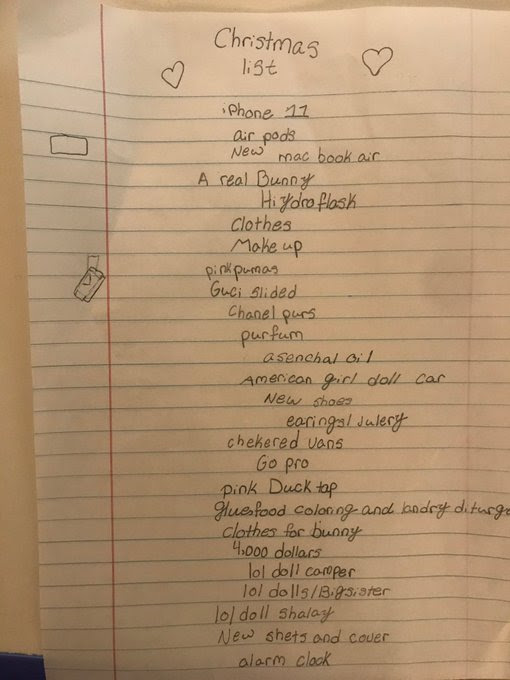 Christmas
list
iPhone 11
air pods
New mac book air
A real Bunny
Hiydroflask
Clothes
Make up
pinkpumas
Guci slided
Chanel purs
purfum
asenchal oil
American girl doll car
New shoes
earings/Julery
chekered vans
Go pro
pink Duck tap
glue food coloring and landry diturg
Clothes for bunny
4,000 dollars
lol doll camper
lol dolls/Bigsister
lol doll shalay
New shets and cover
alarm clock